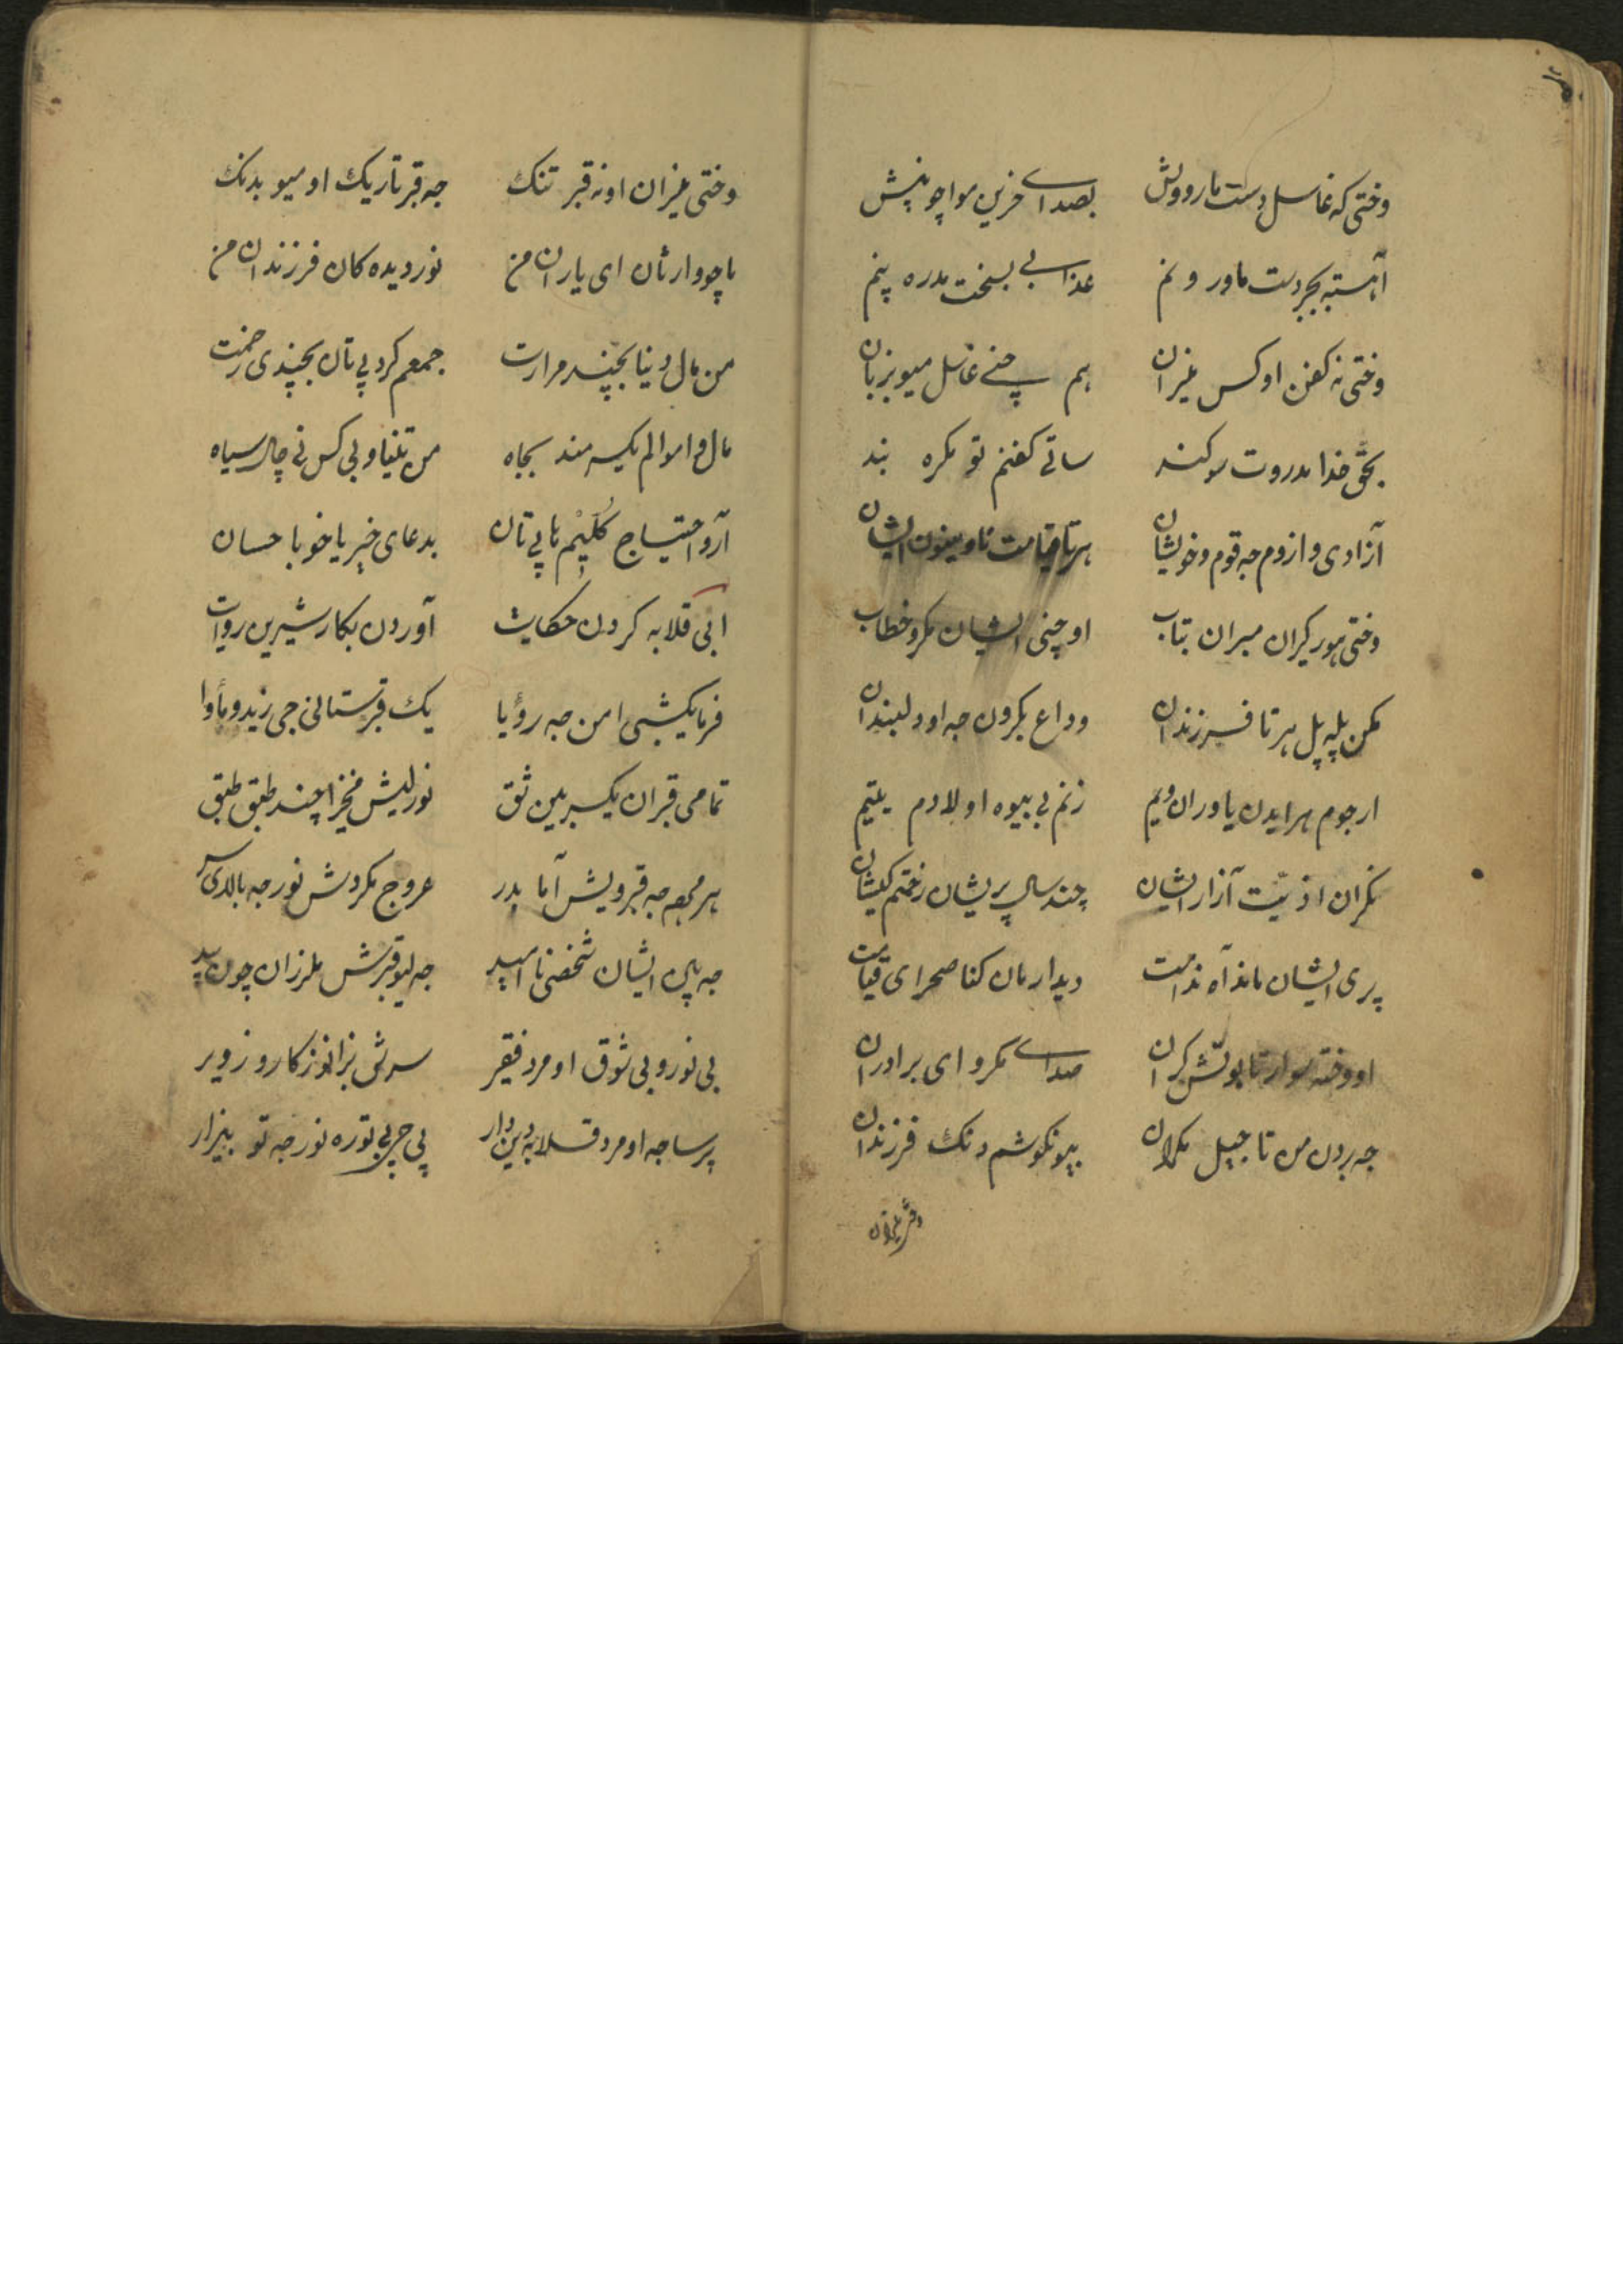 وختی که غاسل دست مارو ویش بصدای حزین مواچو پنیش
آهسته بجر دست ماور ونم عذابی بسختت مدره پنم
وختی نه کفن او کس میزان هم چنی غاسل میو بزبان
بحق خدا مدروت سوکند ساتی کفنم تو مکره بند
آزادی وازوم جه قوم وخویشان هرتا قیامت ناوینون ایشان
وختی هور کیران میران بتاب او چنی ایشان مکرو خطاب
مکن پله پل هرتا فرزندان وداع بکرون جه او دلبندان
ارجوم هر ایدن یاوران ویم زنم بی بیوه اولادم یتیم
نکران اذیّت آزار ایشان چند سال پریشان زحمتم کیشان
پری ایشان ماند آه ندامت دیدارمان کنا صحرای قیامت
او وخته سوار تابوتش کران صدای مکرو ای برادران
جه بردن من تاجیل مکران بیونکوشم دنک فرزندان
وختی میزان اونه قبر تنک جه قبر تاریک او میو بدنک
ماچو وارثان ای یاران من نوردیده کان فرزندان من
من مال دنیا بچند مرارت جمعم کرد پی تان بچندی زحمت
مال و اموالم یکسر مند بجاه من تنیا و بی کس نی چال سیاه
آرو احتیاج کلیم تا پی تان بدعای خیر یا خو با حسان
ابی قلابه کردن حکایت آوردن بکار شیرین روایت
فرما یکشبی امن جه رؤیا یک قبرستانی جی زید و مأوا
تمامی قبران یکسر بین شق نور لیش مخیزا چند طبق طبق
هر مجمعه جه قبر ویش آما بدر عروج مکردش نور جه بالای سر
جه بین ایشان شخصی نا امید جه لیو قبرش ملرزان چون بید
بی نور و بی شوق او مرد فقیر سرش بزانو ز کار و زویر
پرسا جه او مرد قلابه دین دار پی چی بی توره نور جه تو بیزار